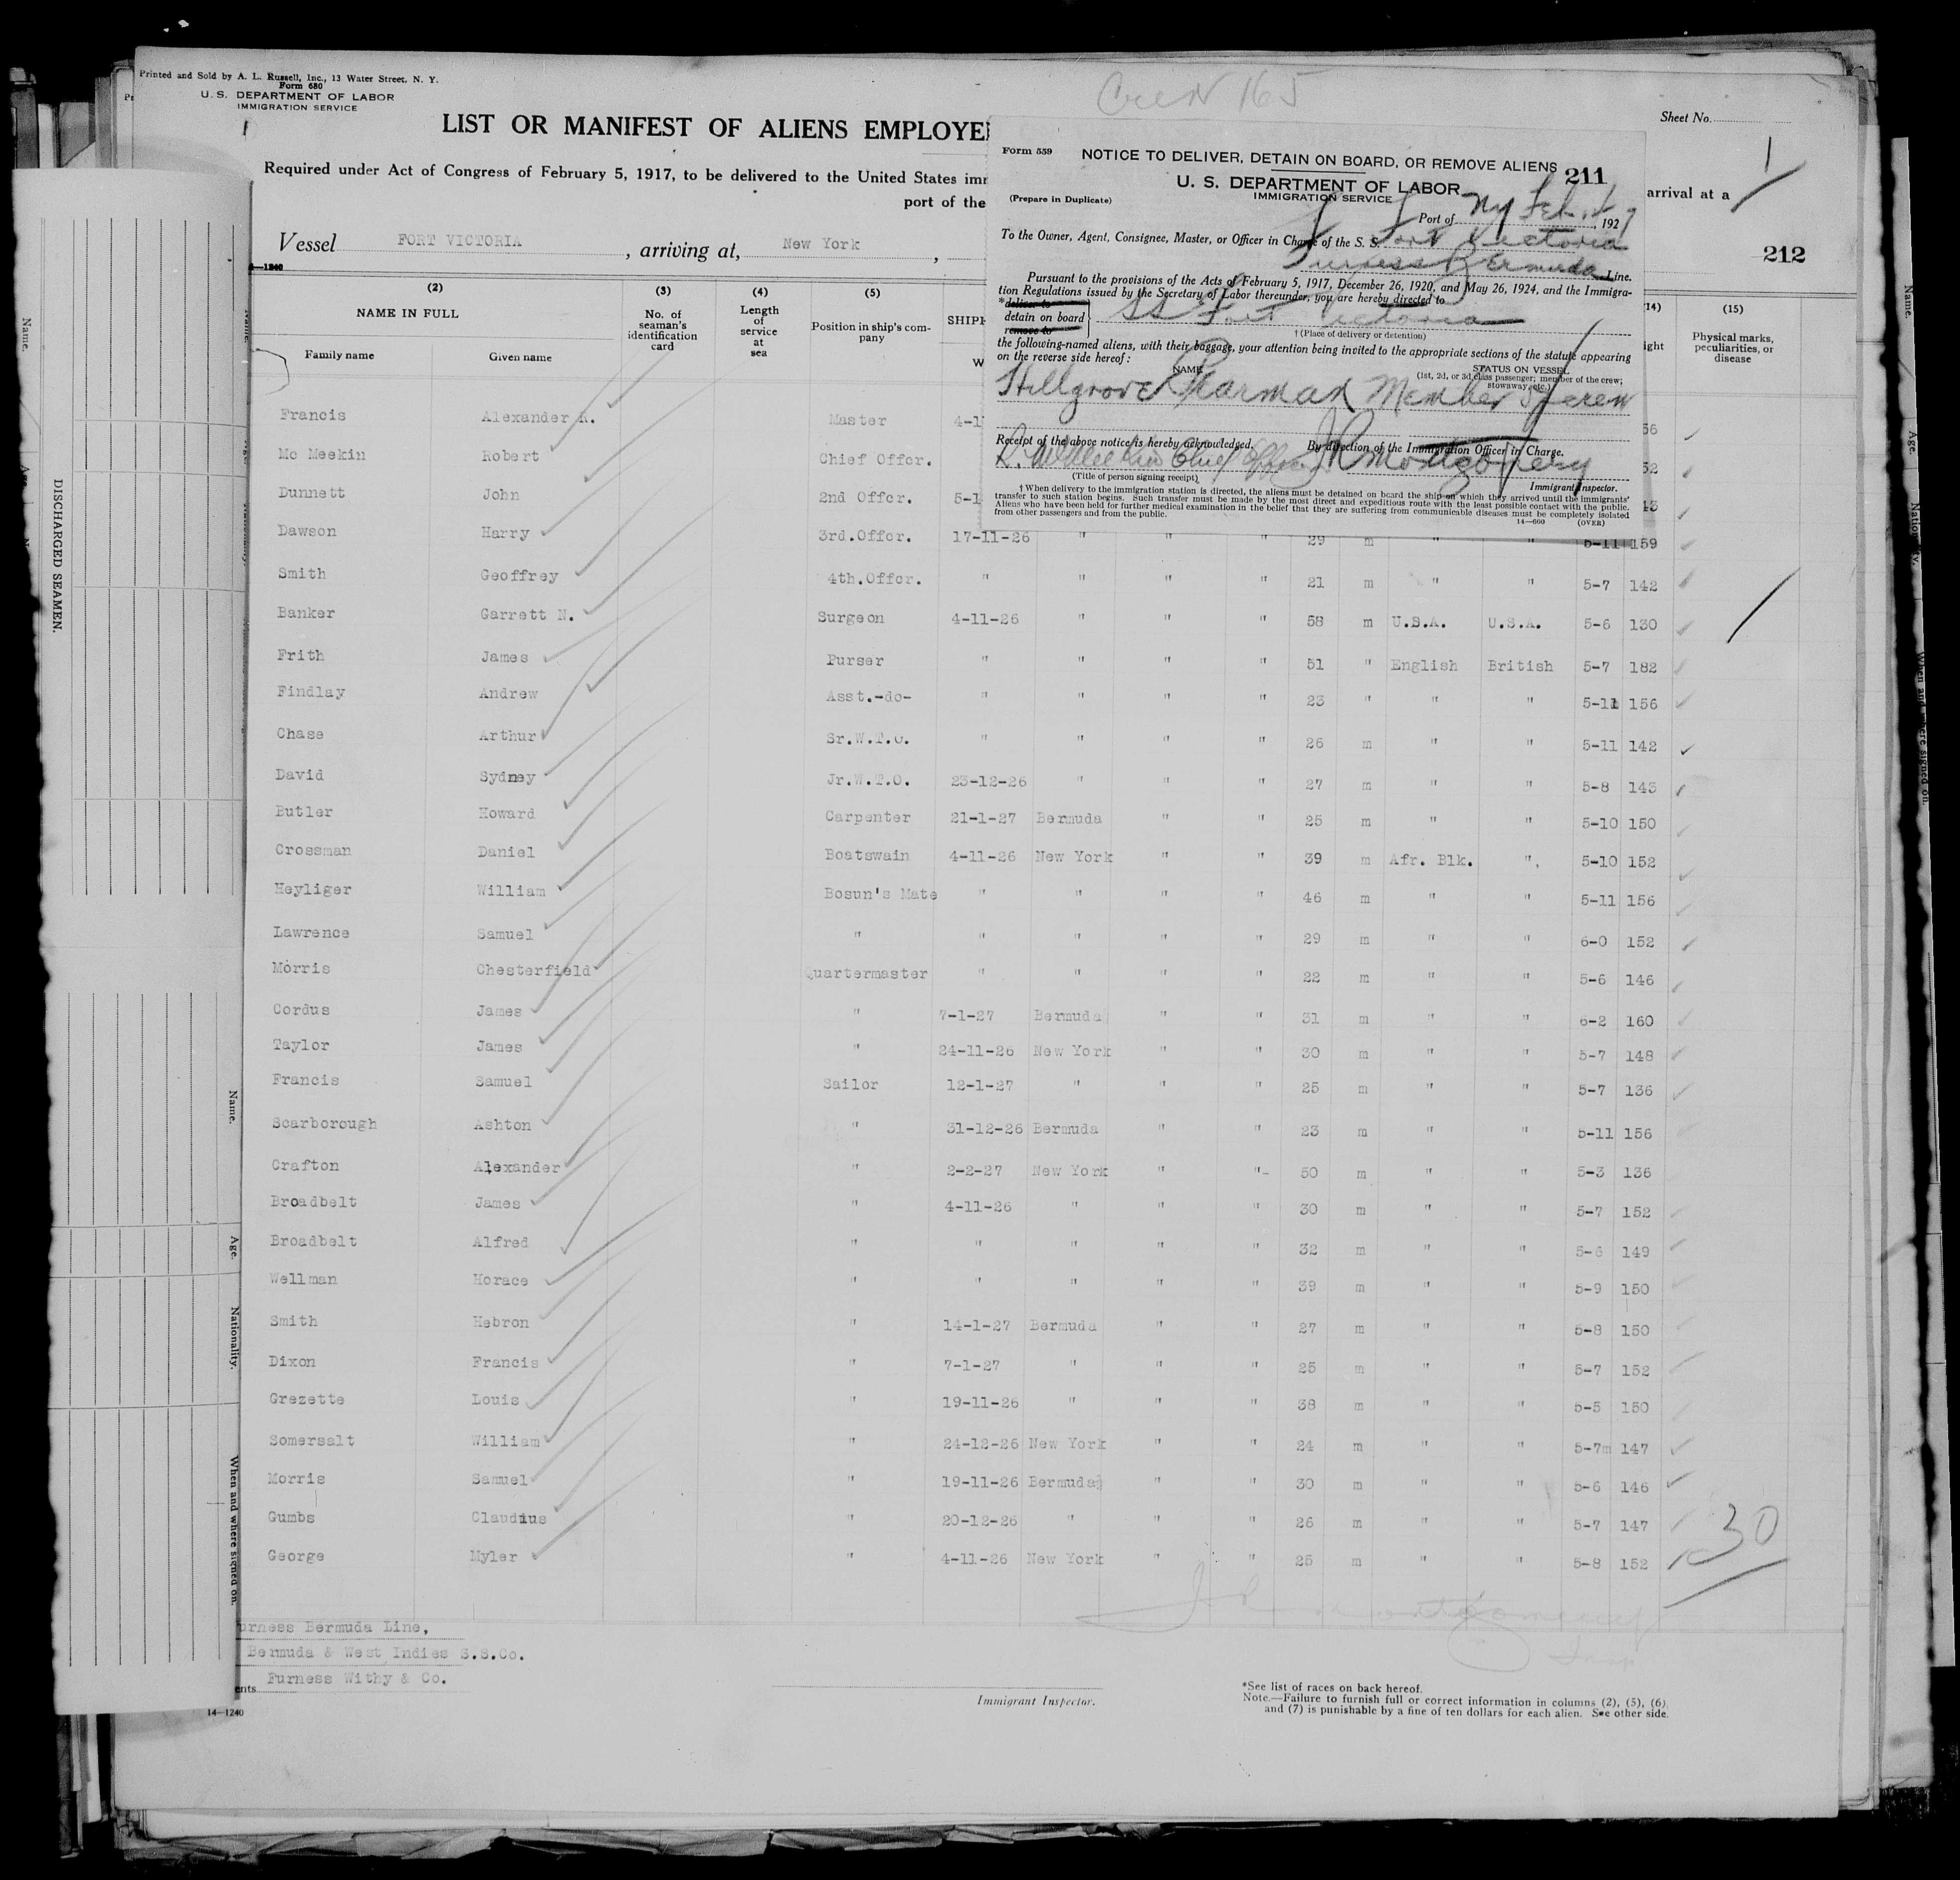 Printed and Sold by A. L. Russell, Inc., 13 Water Street, N. Y.
Form 680
U. S. DEPARTMENT OF LABOR
IMMIGRATION SERVICE
165
Sheet No.
1
LIST OR MANIFEST OF ALIENS EMPLOYE
Required under Act of Congress of February 5, 1917, to be delivered to the United States imm
arrival at a
port of the
212
Vessel FORT VICTORIA, arriving at, New York,
Form 559
NOTICE TO DELIVER, DETAIN ON BOARD, OR REMOVE ALIENS 211
U. S. DEPARTMENT OF LABOR
IMMIGRATION SERVICE
(Prepare in Duplicate)
Port of NY Feb. , 1927
To the Owner, Agent, Consignee, Master, or Officer in Charge of the S. S. Fort Victoria
Furness Bermuda Line.
Pursuant to the provisions of the Acts of February 5, 1917, December 26, 1920, and May 26, 1924, and the Immigra-
tion Regulations issued by the Secretary of Labor thereunder, you are hereby directed to
*deliver to
detain on board SS Fort Victoria
remove to
† (Place of delivery or detention)
the following-named aliens, with their baggage, your attention being invited to the appropriate sections of the statute appearing
on the reverse side hereof:
NAME
STATUS ON VESSEL
(1st, 2d, or 3d class passenger; member of the crew;
stowaway, etc.)
Hillgrove Pearman Member of crew
Receipt of the above notice is hereby acknowledged. By direction of the Immigration Officer in Charge.
R. McMeekin Chief Officer J R Montgomery
(Title of person signing receipt)
Immigrant Inspector.
† When delivery to the immigration station is directed, the aliens must be detained on board the ship on which they arrived until the immigrants'
transfer to such station begins. Such transfer must be made by the most direct and expeditious route with the least possible contact with the public.
Aliens who have been held for further medical examination in the belief that they are suffering from communicable diseases must be completely isolated
from other passengers and from the public.
14—660 (OVER)
(2) (3) (4) (5) (14) (15)
NAME IN FULL
Family name Given name
No. of seaman's identification card
Length of service at sea
Position in ship's com-
pany
Physical marks, peculiarities, or disease
Francis Alexander R. Master 4-1 56
Mc Meekin Robert Chief Offcr. 52
Dunnett John 2nd Offcr. 5-1 43
Dawson Harry 3rd.Offcr. 17-11-26 " " " 29 m " " 5-11 159
Smith Geoffrey 4th.Offcr. " " " " 21 m " " 5-7 142
Banker Garrett N. Surgeon 4-11-26 " " " 58 m U.S.A. U.S.A. 5-6 130
Frith James Purser " " " " 51 " English British 5-7 182
Findlay Andrew Asst.-do- " " " " 23 " " " 5-11 156
Chase Arthur Sr.W.T.O. " " " " 26 m " " 5-11 142
David Sydney Jr.W.T.O. 23-12-26 " " " 27 m " " 5-8 143
Butler Howard Carpenter 21-1-27 Bermuda " " 25 m " " 5-10 150
Crossman Daniel Boatswain 4-11-26 New York " " 39 m Afr. Blk. ", 5-10 152
Heyliger William Bosun's Mate " " " " 46 m " " 5-11 156
Lawrence Samuel " " " " " 29 m " " 6-0 152
Morris Chesterfield Quartermaster " " " " 22 m " " 5-6 146
Cordus James " 7-1-27 Bermuda " " 31 m " " 6-2 160
Taylor James " 24-11-26 New York " " 30 m " " 5-7 148
Francis Samuel Sailor 12-1-27 " " " 25 m " " 5-7 136
Scarborough Ashton " 31-12-26 Bermuda " " 23 m " " 5-11 156
Crafton Alexander " 2-2-27 New York " "- 50 m " " 5-3 136
Broadbelt James " 4-11-26 " " " 30 m " " 5-7 152
Broadbelt Alfred " " " " " 32 m " " 5-6 149
Wellman Horace " " " " " 39 m " " 5-9 150
Smith Hebron " 14-1-27 Bermuda " " 27 m " " 5-8 150
Dixon Francis " 7-1-27 " " " 25 m " " 5-7 152
Grezette Louis " 19-11-26 " " " 38 m " " 5-5 150
Somersalt William " 24-12-26 New York " " 24 m " " 5-7m 147
Morris Samuel " 19-11-26 Bermuda " " 30 m " " 5-6 146
Gumbs Claudius " 20-12-26 " " " 26 m " " 5-7 147
George Myler " 4-11-26 New York " " 25 m " " 5-8 152
30
J R Montgomery
Insp
urness Bermuda Line,
Bermuda & West Indies S.S.Co.
ents Furness Withy & Co.
Immigrant Inspector.
*See list of races on back hereof.
Note.—Failure to furnish full or correct information in columns (2), (5), (6),
and (7) is punishable by a fine of ten dollars for each alien. See other side.
14—1240
DISCHARGED SEAMEN.
Name.
Age.
Nationality.
When and where signed on.